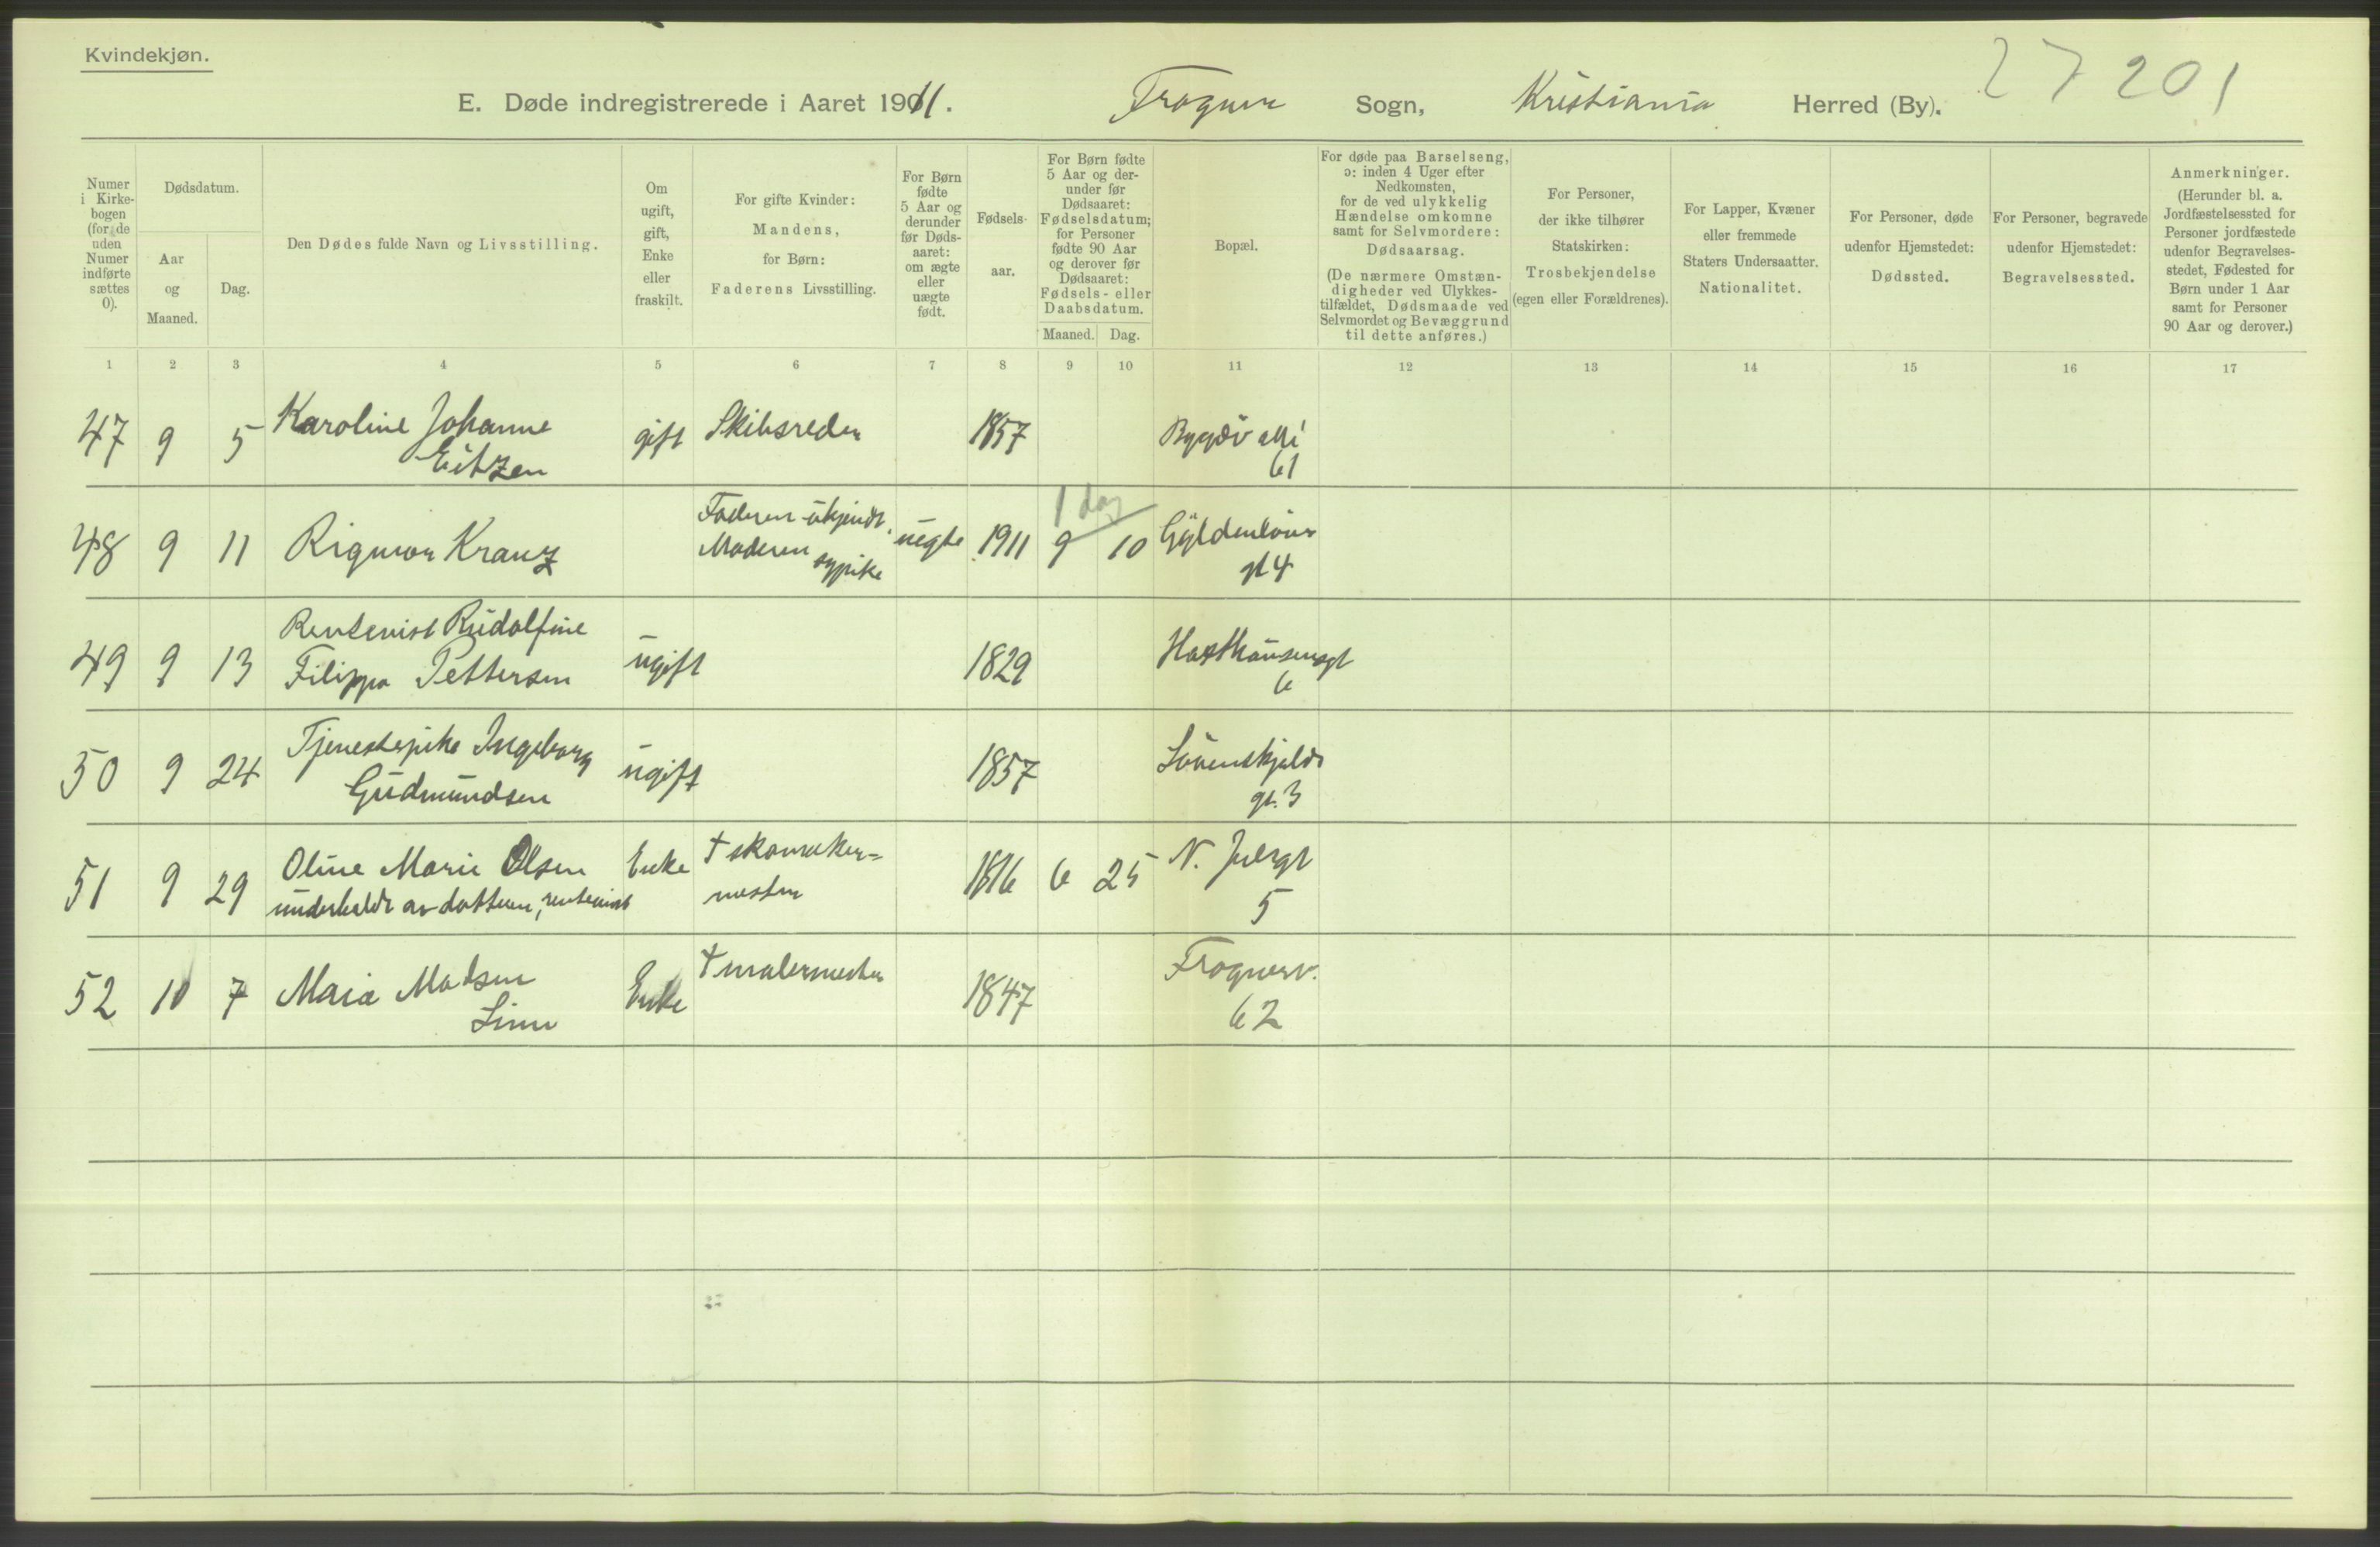 Kvindekjøn.
27 201
E. Døde indregistrerede i Aaret 1911. Frogner Sogn, Kristiania Herred (By).
Numer i Kirke-bogen (for de uden Numer indførte sættes 0).
Dødsdatum.
Aar og Maaned.
Dag.
Den Dødes fulde Navn og Livsstilling.
Om ugift, gift, Enke eller fraskilt.
For gifte Kvinder: Mandens, for Børn: Faderens Livsstilling.
For Børn fødte 5 Aar og derunder før Døds-aaret: om ægte eller uægte født.
Fødsels-aar.
For Børn fødte 5 Aar og der-under før Dødsaaret: Fødselsdatum; for Personer fødte 90 Aar og derover før Dødsaaret: Fødsels- eller Daabsdatum.
Maaned. Dag.
Bopæl.
For døde paa Barselseng, ɔ: inden 4 Uger efter Nedkomsten, for de ved ulykkelig Hændelse omkomne samt for Selvmordere: Dødsaarsag.
(De nærmere Omstæn-digheder ved Ulykkes-tilfældet, Dødsmaade ved Selvmordet og Bevæggrund til dette anføres.)
For Personer, der ikke tilhører Statskirken: Trosbekjendelse (egen eller Forældrenes).
For Lapper, Kvæner eller fremmede Staters Undersaatter. Nationalitet.
For Personer, døde udenfor Hjemstedet: Dødssted.
For Personer, begravede udenfor Hjemstedet: Begravelsessted.
Anmerkninger.
(Herunder bl. a. Jordfæstelsessted for Personer jordfæstede udenfor Begravelses-stedet, Fødested for Børn under 1 Aar samt for Personer 90 Aar og derover.)
1 2 3 4 5 6 7 8 9 10 11 12 13 14 15 16 17
47 9 5 Karoline Johanne Eitzen gift Skibsreder 1857 Bygdø allé 61
48 9 11 Rigmor Kranz Faderen ukjendt. Moderen sypike uegte 1911 9 10 1 dag Gyldenløves gt 4
49 9 13 Rentenist Rudolfine Filippa Pettersen ugift 1829 Haxthausensgt 6
50 9 24 Tjenestepike Ingeborg Gudmundsen ugift 1857 Løvenskjolds gt. 3
51 9 29 Oline Marie Olsen underholdt av datteren, rentenist Enke † skomaker=mester 1816 6 25 N. Juelsgt 5
52 10 7 Maia Madsen Linn Enke † malermester 1847 Frognerv. 62